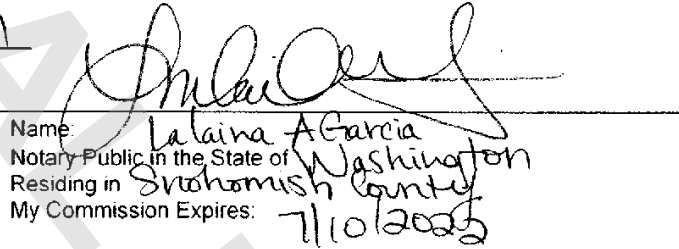 Name: Lalaina A Garcia
Notary Public in the State of Washington
Residing in Snohomish County
My Commission Expires: 7/10/2025